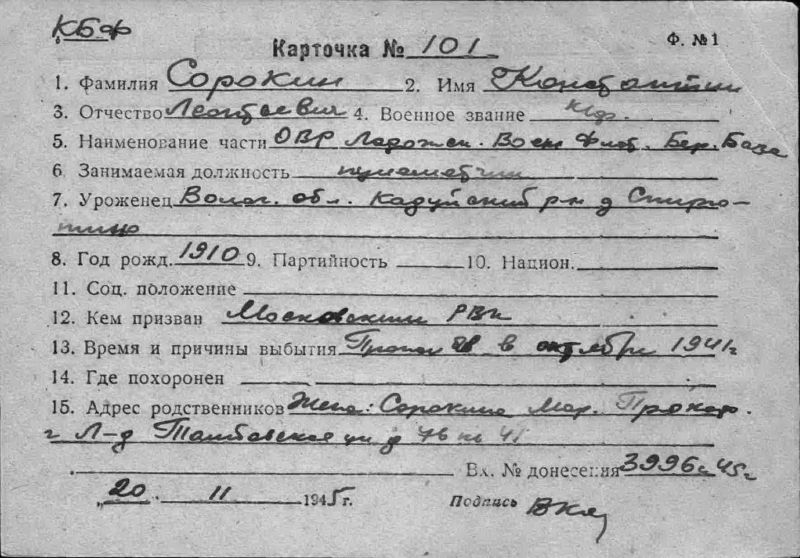 КБФ
Карточка № 101 Ф. №1
1. Фамилия Сорокин 2. Имя Константин
3. Отчество Леонтьевич 4. Военное звание кр-ф.
5. Наименование части ОВР Ладожск. Воен Флот. Бер. База
6. Занимаемая должность пулеметчик
7. Уроженец Волог. обл. Кадуйский р-н д Спиро-
тино
8. Год рожд. 1910 9. Партийность 10. Национ.
11. Соц. положение
12. Кем призван Московским РВК
13. Время и причины выбытия Пропал в октябре 1941г
14. Где похоронен
15. Адрес родственников Жена: Сорокина Мар. Прокоф.
г Л-д Тамбовская ул д 76 кв 41
Вх. № донесения 3996с 45г
„20 11 1945г. Подпись